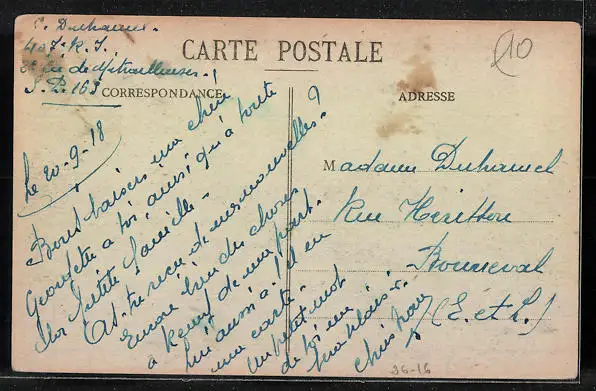 E. Duhamel
407e R. I.
2e Cie de Mitrailleuses.
S. P. 163
CARTE POSTALE
10
CORRESPONDANCE
ADRESSE
Le 20-9-18
Bons baisers ma chère
Georgette à toi, ainsi qu'à toute
la petite famille -
As-tu reçu de mes nouvelles. ?
Encore bien des choses
à de ma part.
lui aussi a
une carte.
Un petit mot
de toi me
Madame Duhamel
Rue Hérisson
Bonneval
(E. et L.)
26-16